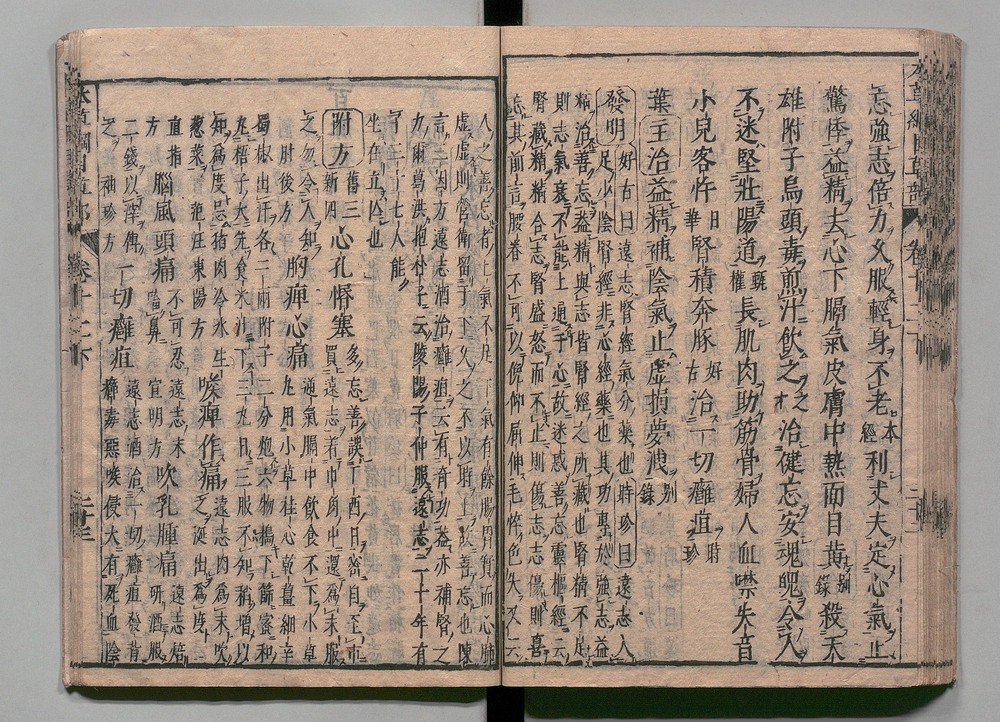 忘強志倍力久服輕身不老本經利丈夫定心氣止
驚悸益精去心下膈氣皮膚中熱面目黃别錄殺天
雄附子烏頭毒煎汁飲之之才治健忘安魂魄令人
不迷堅壯陽道甄權長肌肉助筋骨婦人血噤失音
小兒客忤日華腎積奔豚好古治一切癰疽時珍
葉主治益精補陰氣止虛損夢洩别錄
發明好古曰遠志腎經氣分藥也時珍曰遠志入
足少陰腎經非心經藥也其功專於強志益
精治善忘蓋精與志皆腎經之所藏也腎精不足
則志氣衰不能上通于心故迷惑善忘靈樞經云
腎藏精精合志腎盛怒而不止則傷志志傷則喜
忘其前言腰脊不可以俛仰屈伸毛悴色夭又云
人之善忘者上氣不足下氣有餘腸胃實而心肺
虛虛則營衛留于下久之不以時上故善忘也陳
言三因方遠志酒治癰疽云有奇功蓋亦補腎之
力爾葛洪抱朴子云陵陽子仲服遠志二十年有
子三十七人能
坐在立亡也
附方舊三新四心孔惛塞多忘善誤丁酉日密自至市
買遠志着巾角中還為末服
之勿令人知
肘後方胸痺心痛逆氣膈中飲食不下小草
丸用小草桂心乾薑細辛
蜀椒出汗各二兩附子二分炮六物擣下篩蜜和
丸梧子大先食米汁下三丸日三服不知稍增以
知為度忌猪肉冷水生
葱菜范汪東陽方喉痺作痛遠志肉為末吹
之涎出為度
直指方腦風頭痛不可忍遠志末
㗜鼻宣明方吹乳腫痛遠志焙研酒服
二錢以滓傅
之袖珍方一切癰疽遠志酒治一切癰疽發背
癤毒惡候侵大有死血陰